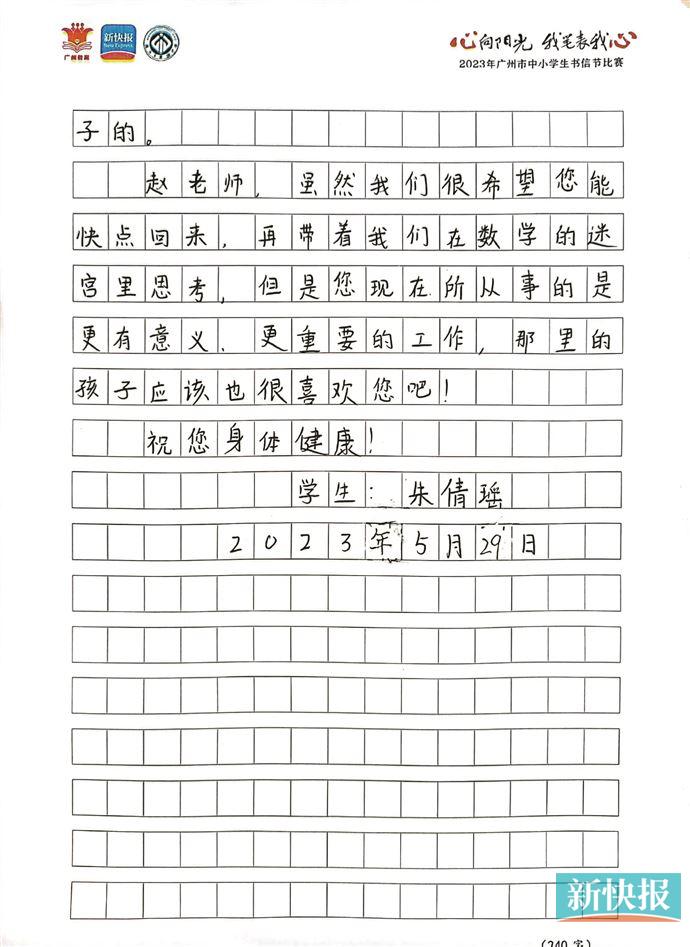 广州教育
新快报
New Express
心向阳光 我笔表我心
2023年广州市中小学生书信节比赛
子的。
赵老师，虽然我们很希望您能
快点回来，再带着我们在数学的迷
宫里思考，但是您现在所从事的是
更有意义、更重要的工作，那里的
孩子应该也很喜欢您吧！
祝您身体健康！
学生：朱倩瑶
2023年5月29日
新快报
(340字)